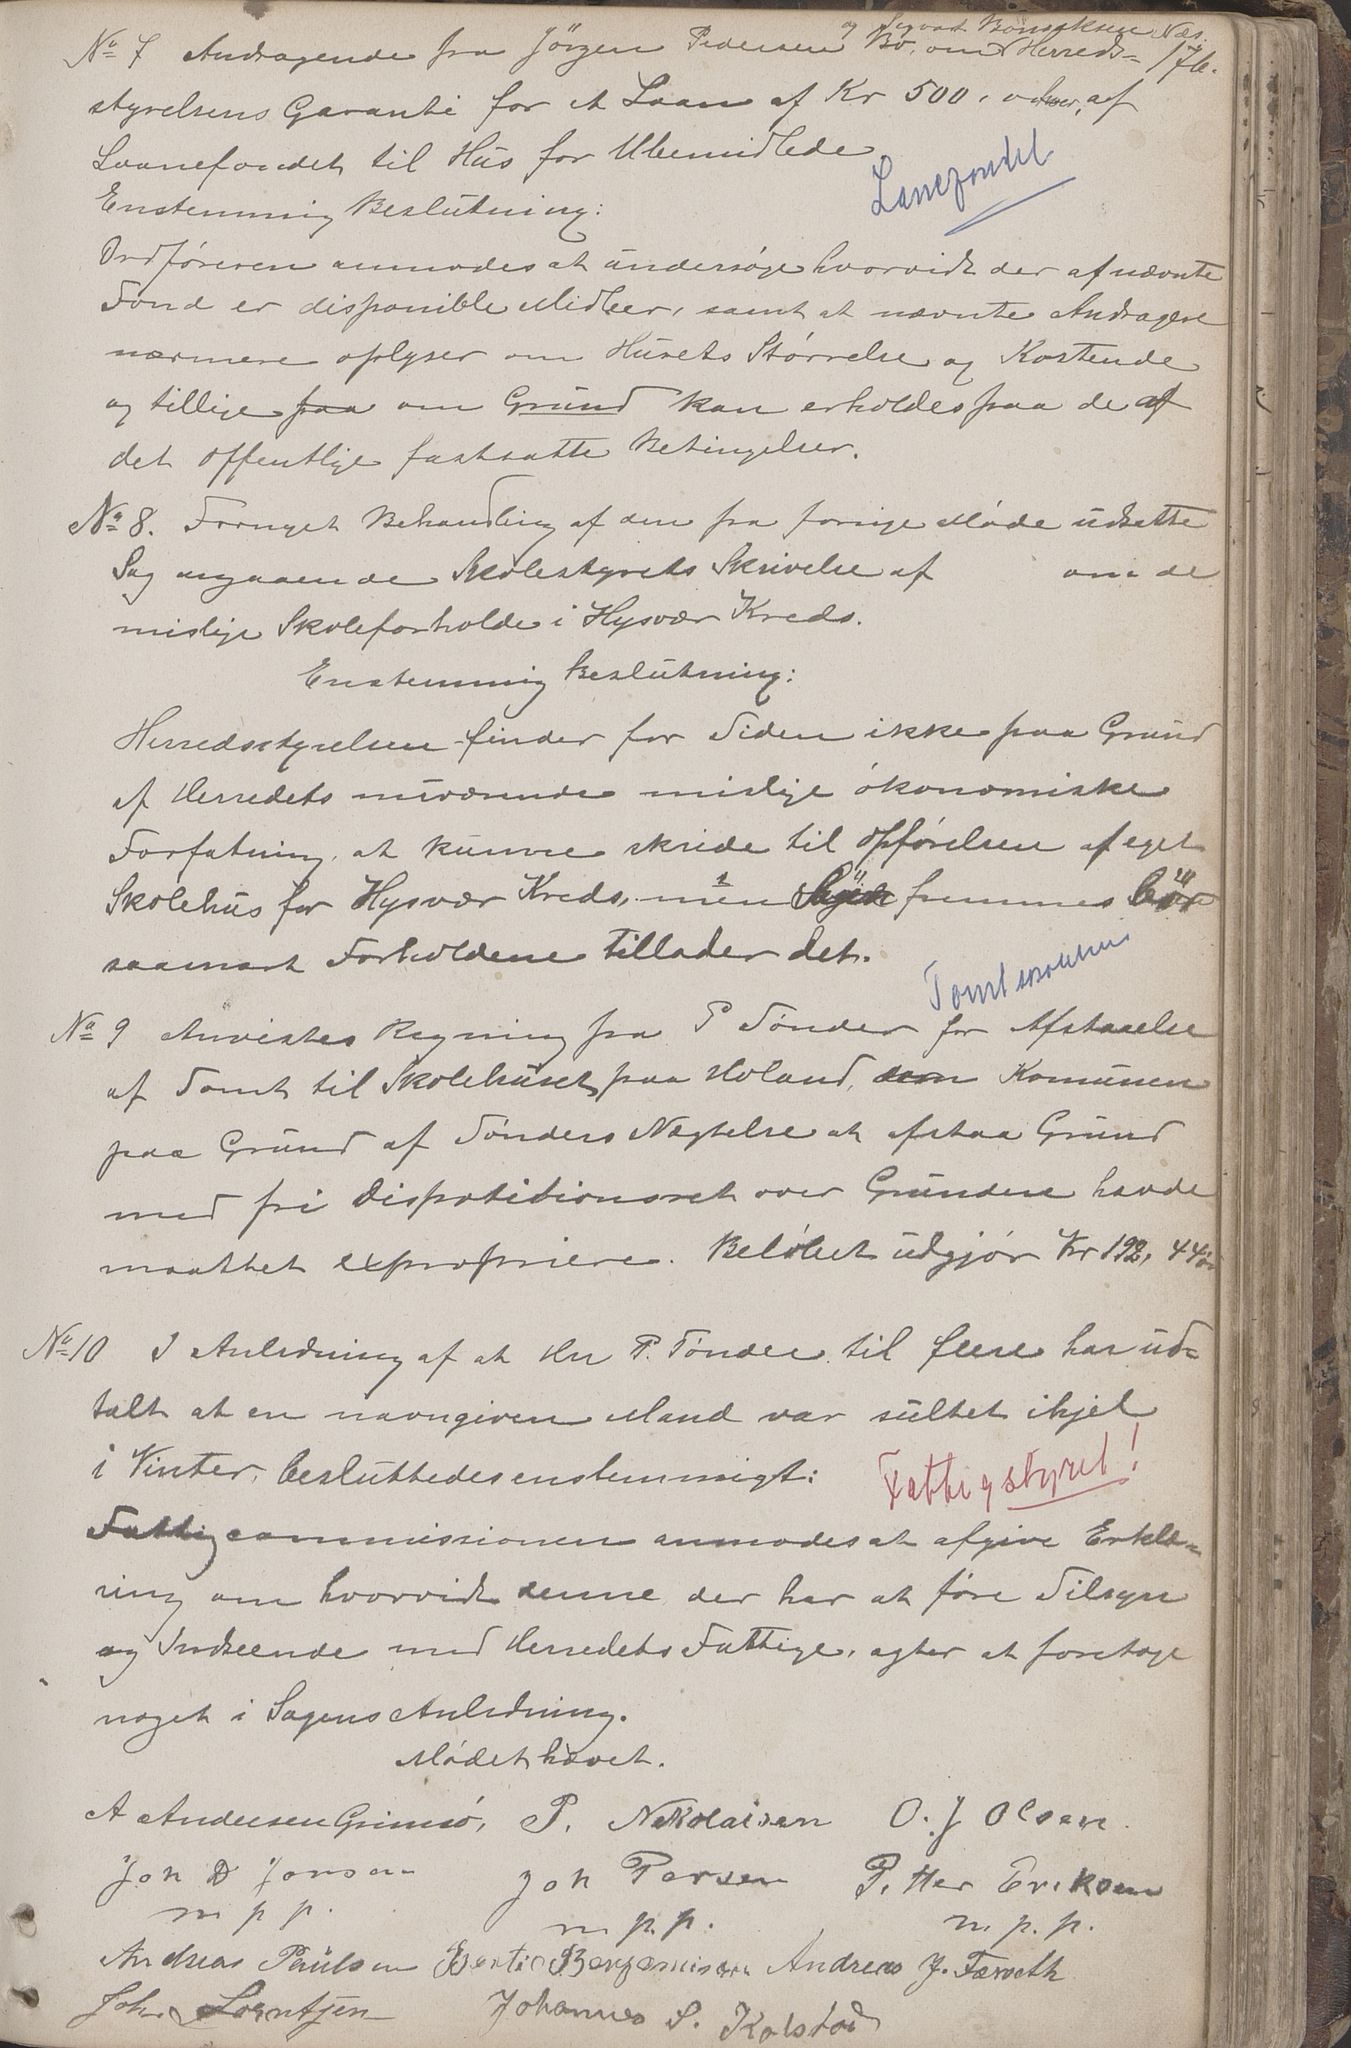 og Sigvart Bønsaksen Næs.
176.
No 7 Andragende fra Jørgen Pedersen Bø, om Herreds-
styrelsens Garanti for et Laan af Kr 500, af
Laanefondet til Hus for Ubemidlede
Lanefondet
Enstemmig Beslutning:
Ordføreren anmodes at undersøge hvorvidt der af nævnte
Fond er disponible Midler, samt at nævnte Andragere
nærmere oplyser om Husets Størrelse og Kostende
og tillige paa om Grund kan erholdes paa de af
det offentlige fastsatte Betingelser.
No 8. Fornyet Behandling af den fra forrige Møde udsatte
Sag angaaende Skolestyrets Skrivelse af om de
mislige Skoleforholde i Hysvær Kreds.
Enstemmig Beslutning:
Herredsstyrelsen finder for Tiden ikke paa Grund
af Herredets nuværende mislige økonomiske
Forfatning, at kunne skride til Opførelsen af eget
Skolehus for Hysvær Kreds, men fremmes bør
saasnart Forholdene tillader det.
Tomtsaken
No 9 Anvistes Regning fra P Tønder for Afstaaelse
af Tomt til Skolehuset paa Holand, som Komunen
paa Grund af Tønders Nægtelse at afstaa Grund
med fri Dispotitionsret over Grunden havde
maattet expropriere. Beløbet udgjør Kr 192, 44 øre
No 10 I Anledning af at Hr P. Tønder til flere har ud-
talt at en navngiven Mand var sultet ihjel
i Vinter, besluttedes enstemmigt:
Fattigstyret!
Fattigcommissionen anmodes at afgive Erklæ-
ring om hvorvidt denne der har at føre Tilsyn
og Indseende med Herredets Fattige, agter at foretage
noget i Sagens Anledning.
Mødet hævet.
A Andersen Grimsø, P. Nikolaisen O. J Olsen.
Joh D Jonsen Joh Persen Petter Eriksen
m p p. m. p. p. m. p. p.
Andreas Paulsen Bertil Benjaminsen Andreas J. Færseth
Joh. Lorntjen Johannes S. Kolstad